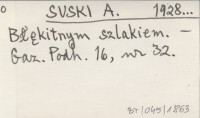 0 SUSKI A. 1928...
Błękitnym szlakiem. –
Gaz. Podh. 16, nr 32.
BT/045/1863